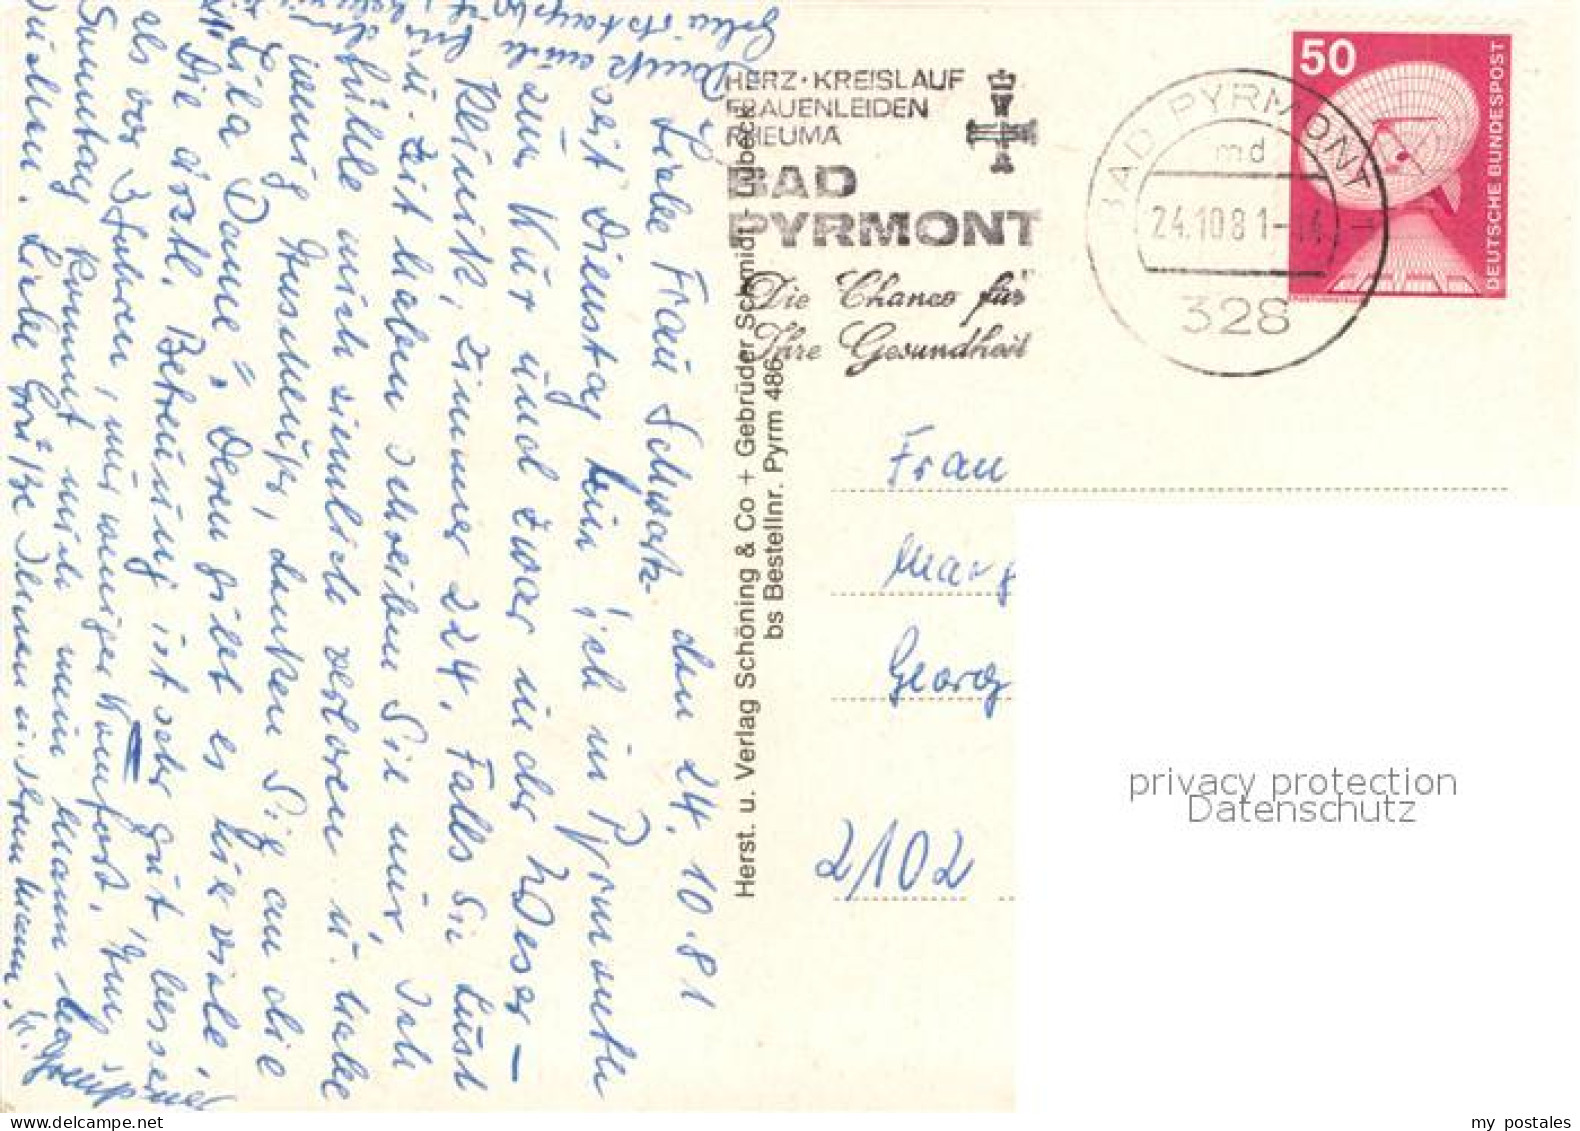 HERZ · KREISLAUF
FRAUENLEIDEN
RHEUMA
BAD
PYRMONT
Die Chance für
Ihre Gesundheit
BAD PYRMONT 1
md
24.10.81-14
328
50
DEUTSCHE BUNDESPOST
den 24.10.81
Liebe Frau Schwark-
seit Dienstag bin ich in Pyrmont
zur Kur und zwar in der Weser-
Klinik, Zimmer 224. Falls Sie Lust
u. Zeit haben schreiben Sie mir, Ich
fühle mich ziemlich verloren u. habe
wenig Anschluß, denken Sie an die
"Lila Dame", deren gibt es hier viele.
Die ärztl. Betreuung ist sehr gut, besser
als vor 3 Jahren, nur weniger Komfort. Am
Sonntag kommt mich mein Mann
Liebe Grüße Ihnen u. Ihrem Mann.
Herst. u. Verlag Schöning & Co + Gebrüder Schmidt - Lübeck
bs Bestellnr. Pyrm 486
Frau
Marg
Georg
2102
privacy protection
Datenschutz
my postales